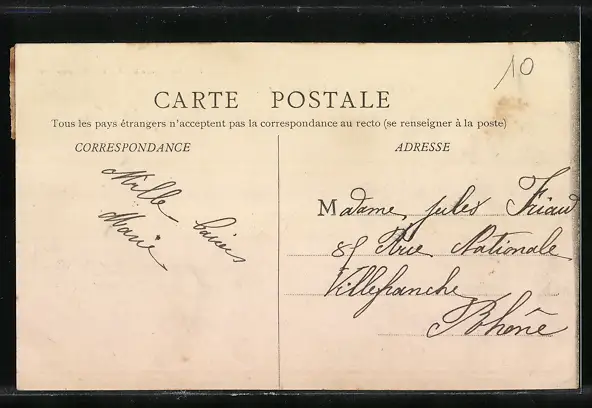 10
CARTE POSTALE
Tous les pays étrangers n'acceptent pas la correspondance au recto (se renseigner à la poste)
CORRESPONDANCE
ADRESSE
Mille baisers
Marie
Madame Jules Friaud
85 Rue Nationale
Villefranche
Rhône